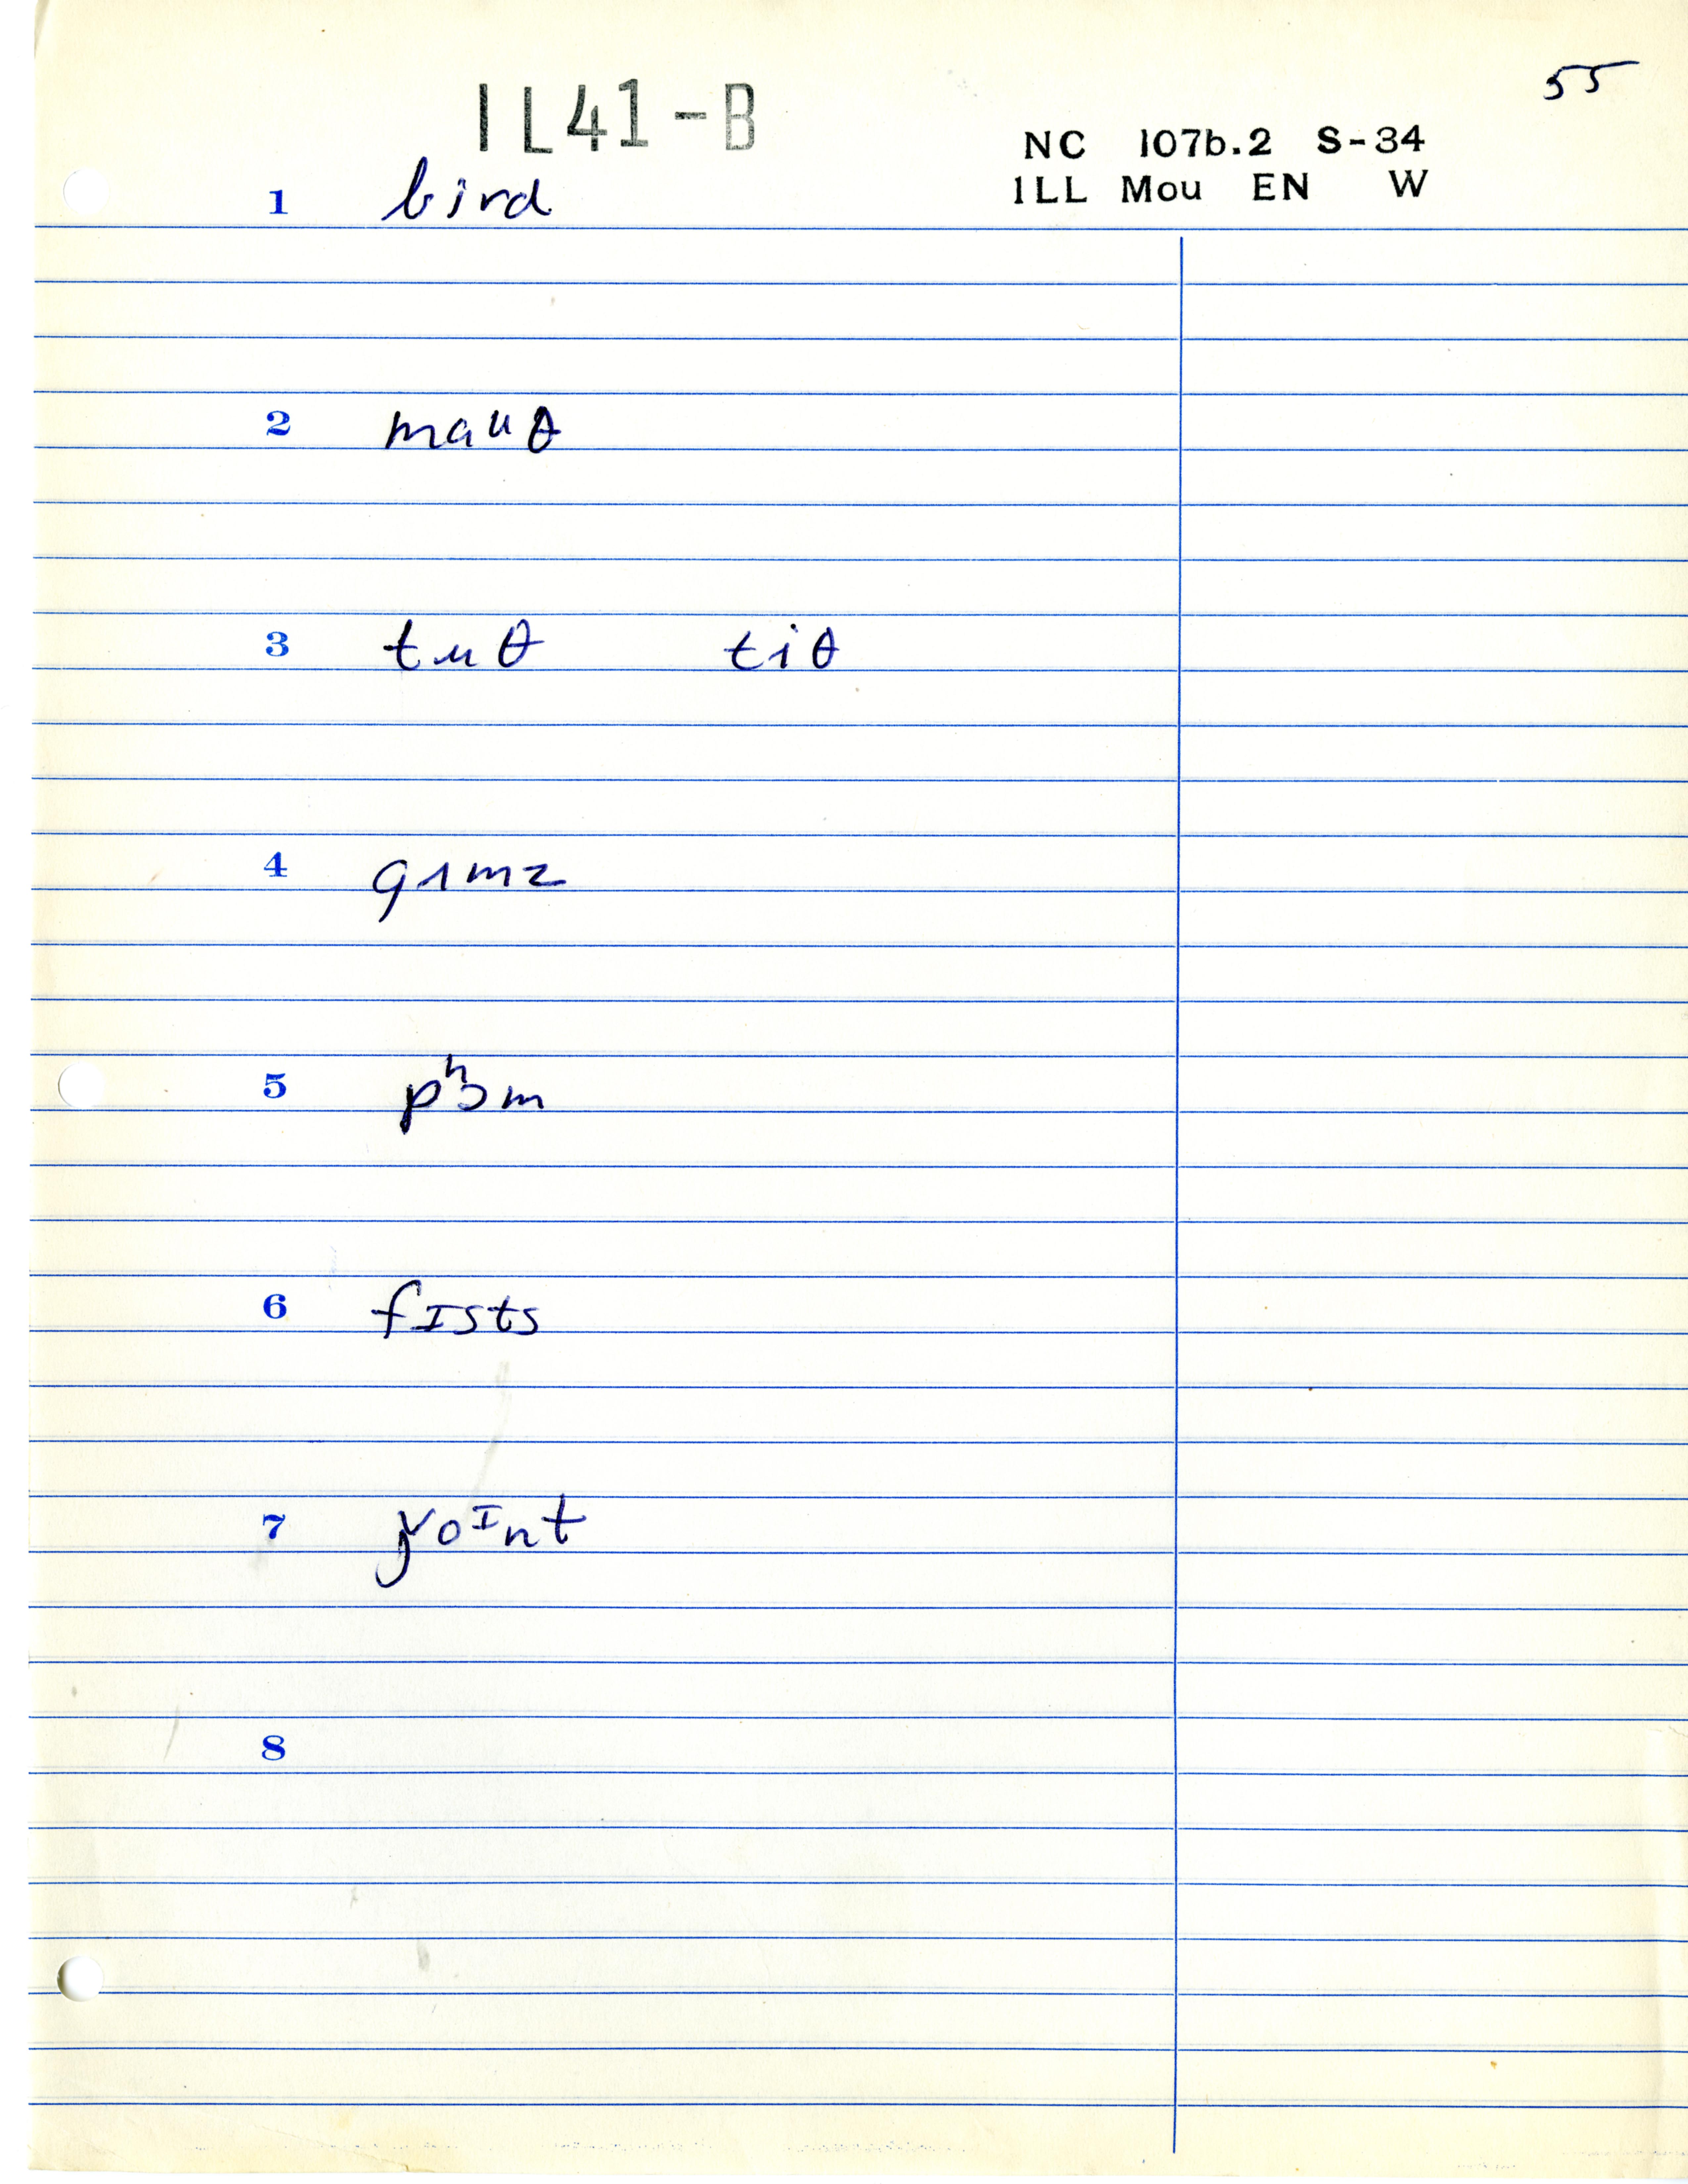 55
IL41-B
NC 107b.2 S-34
ILL Mou EN W
1 bird
2 mauθ
3 tuθ tiθ
4 gʌmz
5 pʰɔm
6 fɪsts
7 ǰoɪnt
8